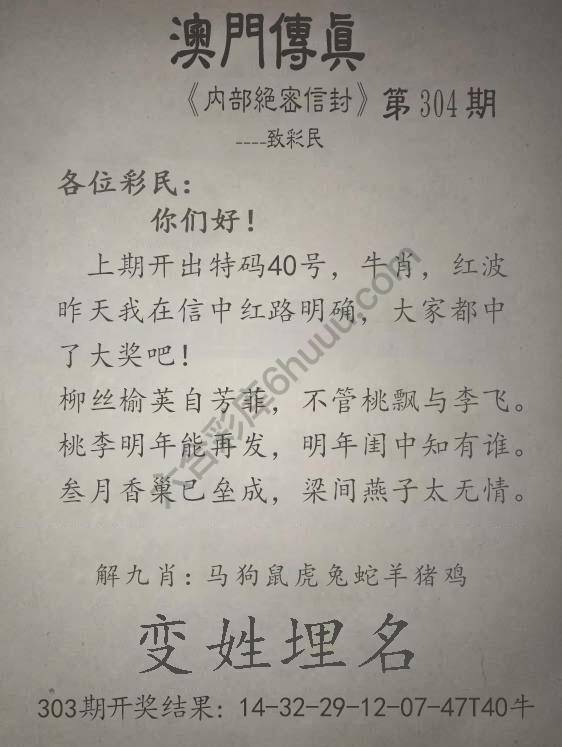 澳門傳眞
《内部絕密信封》第304期
----致彩民
各位彩民：
你们好！
上期开出特码40号，牛肖，红波
昨天我在信中红路明确，大家都中
了大奖吧！
柳丝榆荚自芳菲，不管桃飘与李飞。
桃李明年能再发，明年闺中知有谁。
叁月香巢已垒成，梁间燕子太无情。
解九肖：马狗鼠虎兔蛇羊猪鸡
变姓埋名
303期开奖结果：14-32-29-12-07-47T40牛
六合彩库6huuu.com